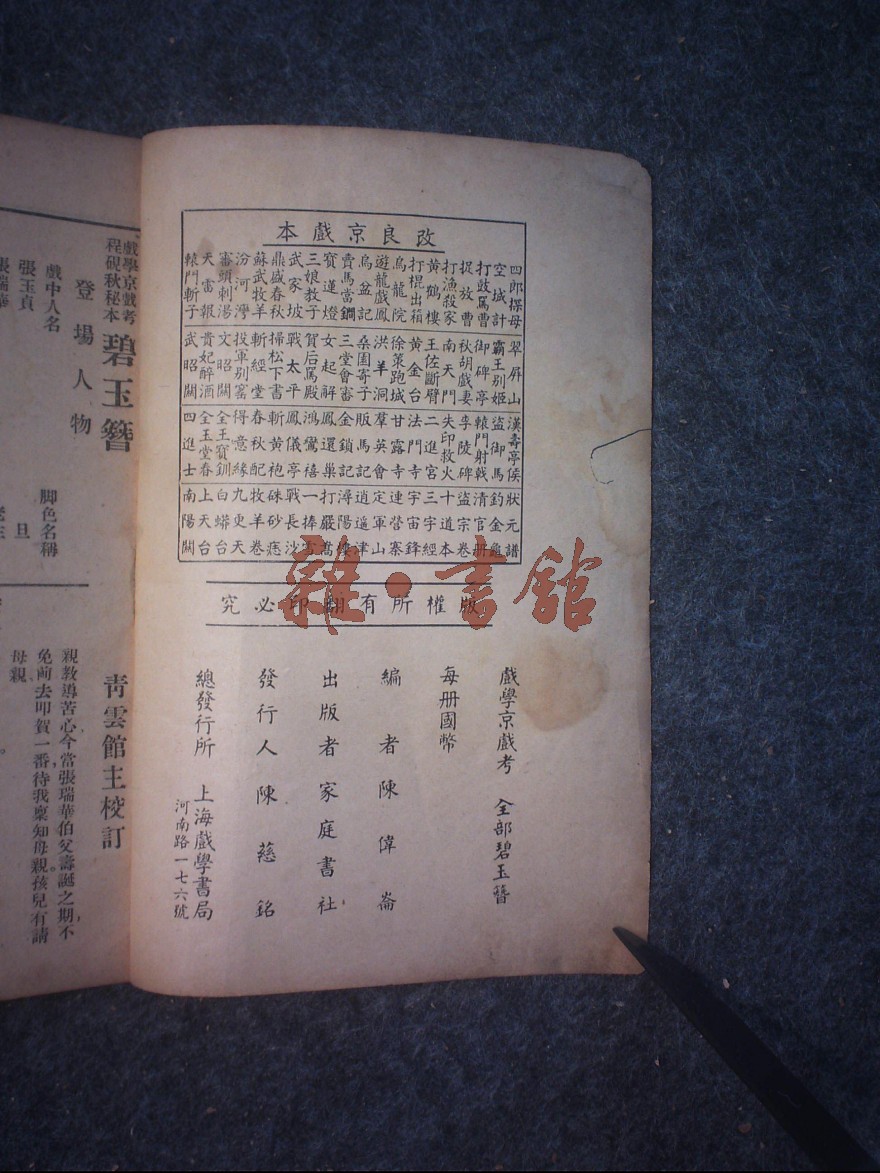 改良京戲本
四郎探母
空城計
打鼓罵曹
捉放曹
打漁殺家
黃鶴樓
打棍出箱
烏龍院
遊龍戲鳳
烏盆記
賣馬當鐧
寶蓮燈
三娘教子
武家坡
鼎盛春秋
蘇武牧羊
汾河灣
審頭刺湯
天雷報
轅門斬子
翠屏山
霸王别姬
御碑亭
秋胡戲妻
南天門
王佐斷臂
黃金台
徐策跑城
洪羊洞
桑園寄子
三堂會審
女起解
賀后罵殿
戰太平
掃松下書
斬經堂
投軍别窰
文昭關
貴妃醉酒
武昭關
漢壽亭侯
盜御馬
轅門射戟
李陵碑
失印救火
二進宮
法門寺
甘露寺
羣英會
販馬記
金鎖記
鳳還巢
鴻鸞禧
鳳儀亭
斬黃袍
春秋配
得意緣
全王寶釧
全玉堂春
四進士
狀元譜
釣金龜
清官册
盜宗卷
十道本
三字經
宇宙鋒
連營寨
定軍山
逍遥津
潯陽樓
打嚴嵩
一捧雪
戰長沙
硃砂痣
牧羊卷
九更天
白蟒台
上天台
南陽關
版權所有翻印必究
戲學京戲考 全部碧玉簪
每册國幣
編者陳偉崙
出版者家庭書社
發行人陳慈銘
總發行所 上海戲學書局
河南路一七六號
雜·書館
戲學京戲考
程硯秋秘本
碧玉簪
青雲館主校訂
登場人物
戲中人名
脚色名稱
張玉貞
旦
張瑞華
親教導苦心今當張瑞華伯父壽誕之期不
免前去叩賀一番待我稟知母親孩兒有請
母親